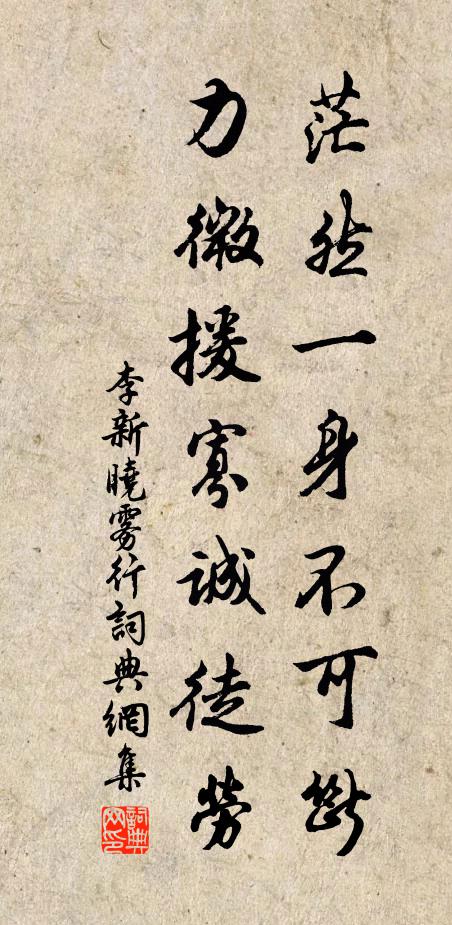 茫然一身不可斷
力微援寡誠徒勞
李新曉霧行詞典網集
詞典
网印